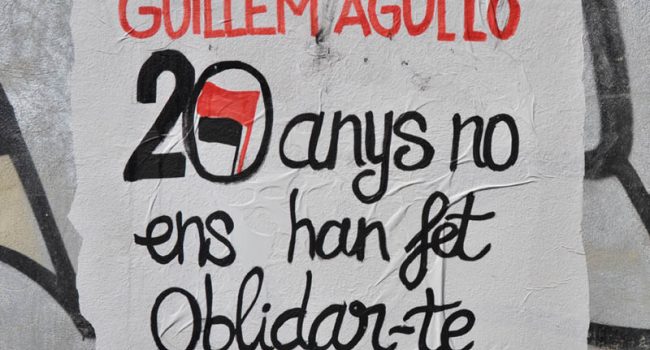 GUILLEM AGULLÓ
20 anys no
ens han fet
Oblidar-te